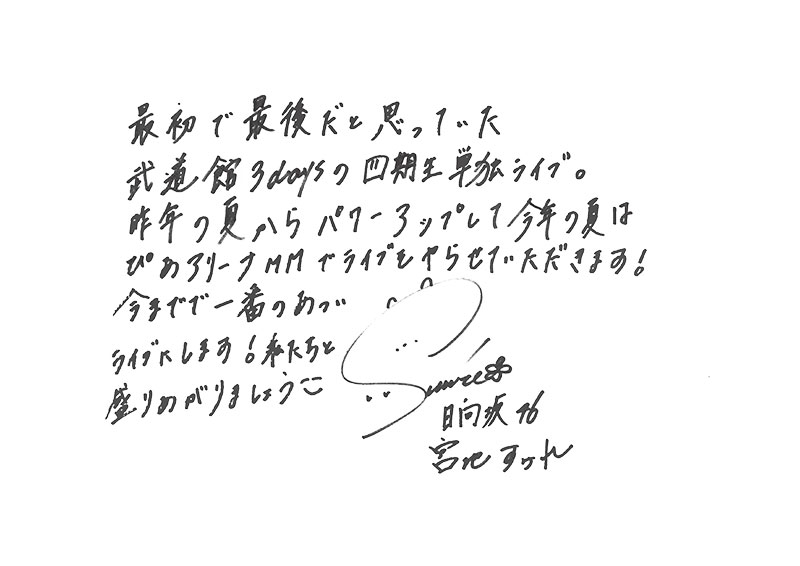 最初で最後だと思っていた
武道館3daysの四期生単独ライブ。
昨年の夏からパワーアップして今年の夏は
ぴあアリーナMMでライブをやらせていただきます!
今までで一番のあつい
ライブにします!私たちと
盛りあがりましょう
Sumire
日向坂46
宮地すみれ